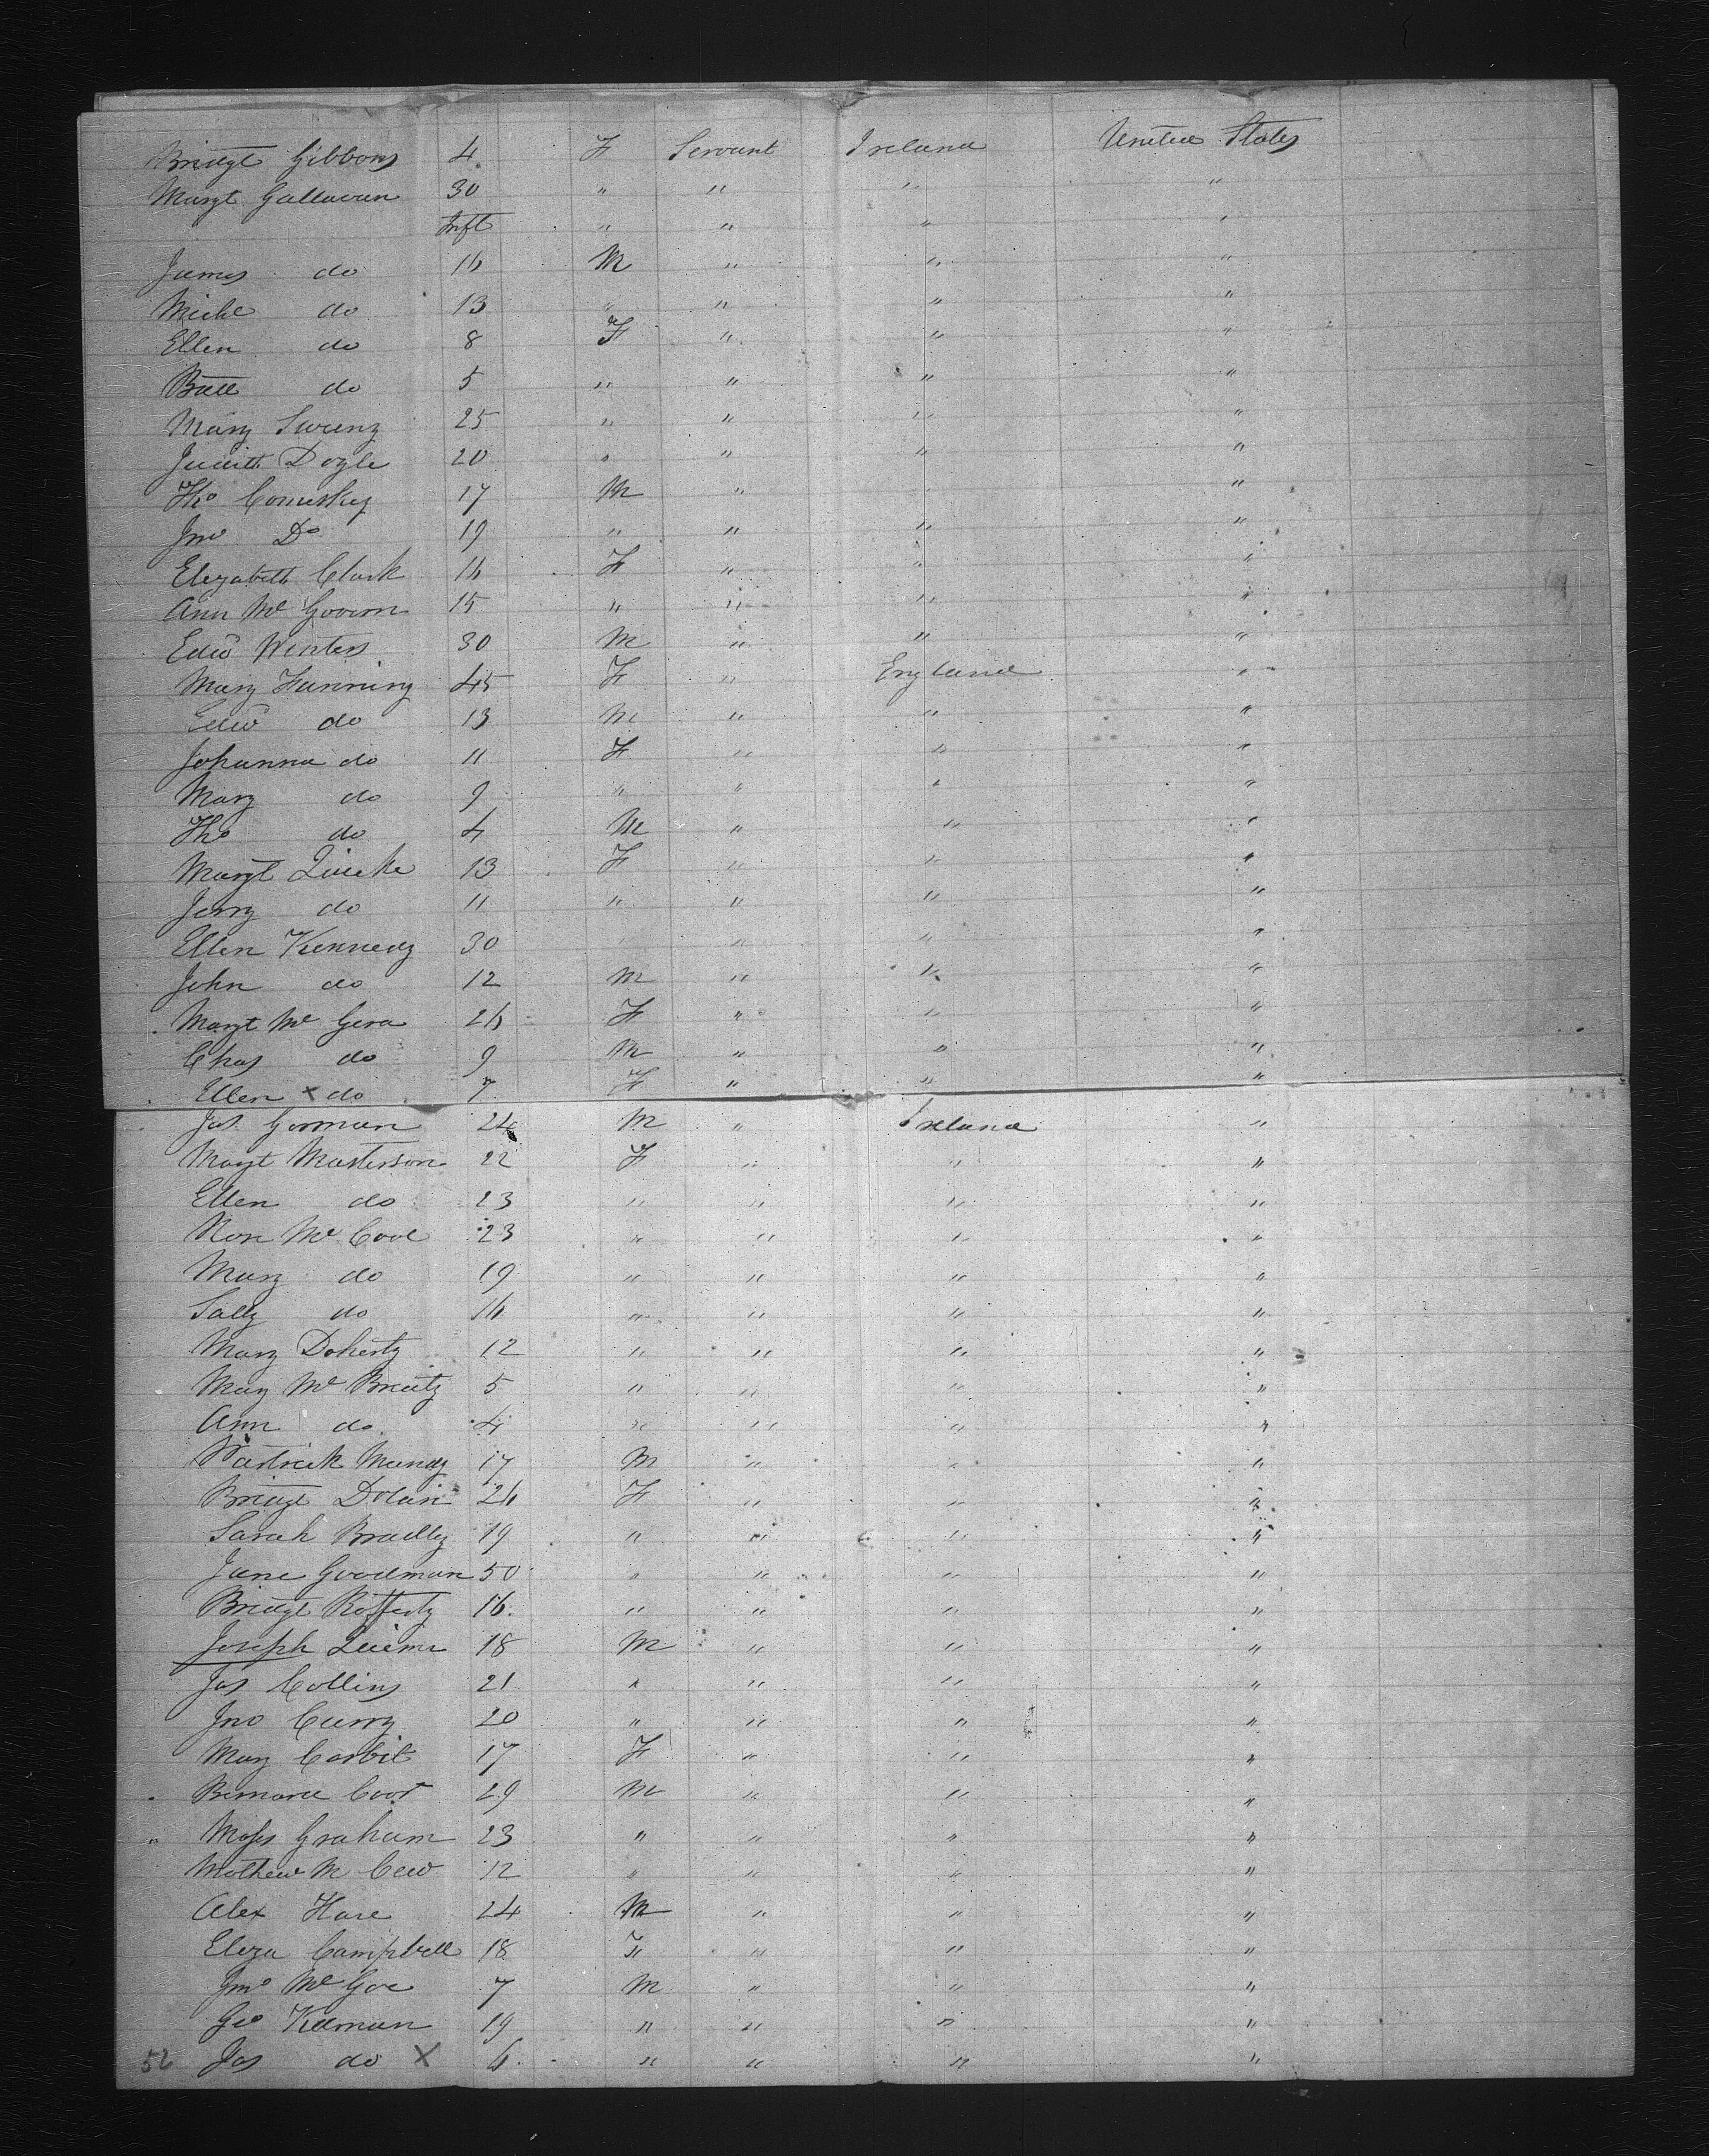 Bridgt Gibbons 4 F Servant Ireland United States
Margt Gallavan 30 " " " "
Inft " " " "
James do 16 M " " "
Michl do 13 " " " "
Ellen do 8 F " " "
do 5 " " " "
Mary Sweeny 25 " " " "
Judith Doyle 20 " " " "
Tho Comiskey 17 M " "
Jno Do 19 " " " "
Elizabeth Clark 16 F " " "
Ann Mc Govern 15 " " " "
Edwd Winters 30 M " " "
Mary Fanning 45 F " England "
Edwd do 13 M " " "
Johanna do 11 F " " "
Mary do 9 " " " "
Tho do 4 M " " "
Margt Quirke 13 F " " "
Jerry do 11 " " " "
Ellen Kennedy 30 " " "
John do 12 M " " "
Margt Mc Gera 26 F " " "
Chas do 9 M " " "
Ellen x do 7 F " " "
Jas Gorman 24 M " Ireland "
Margt Masterson 22 F " " "
Ellen do 23 " " " "
Mc Cool 23 " " " "
Mary do 19 " " " "
Sally do 16 " " " "
Mary Doherty 12 " " " "
Mary Mc 5 " " " "
Ann do 4 " " " "
Patrick Mundy 17 M " " "
Bridgt Dolan 26 F " " "
Sarah Bradley 19 " " " "
Jane Goodman 50 " " " "
Bridgt Rafferty 16 " " " "
Joseph 18 M " " "
Jas Collins 21 " " " "
Jno Curry 20 " " " "
Mary Corbit 17 F " " "
Bernard 29 M " " "
" Moses Graham 23 " " " "
Mathew M 12 " " " "
Alex Hare 24 M " " "
Eliza Campbell 18 F " " "
Jno Mc Goe 7 M " " "
Geo Kilman 19 " " " "
52 Jas do X 6 " " " "